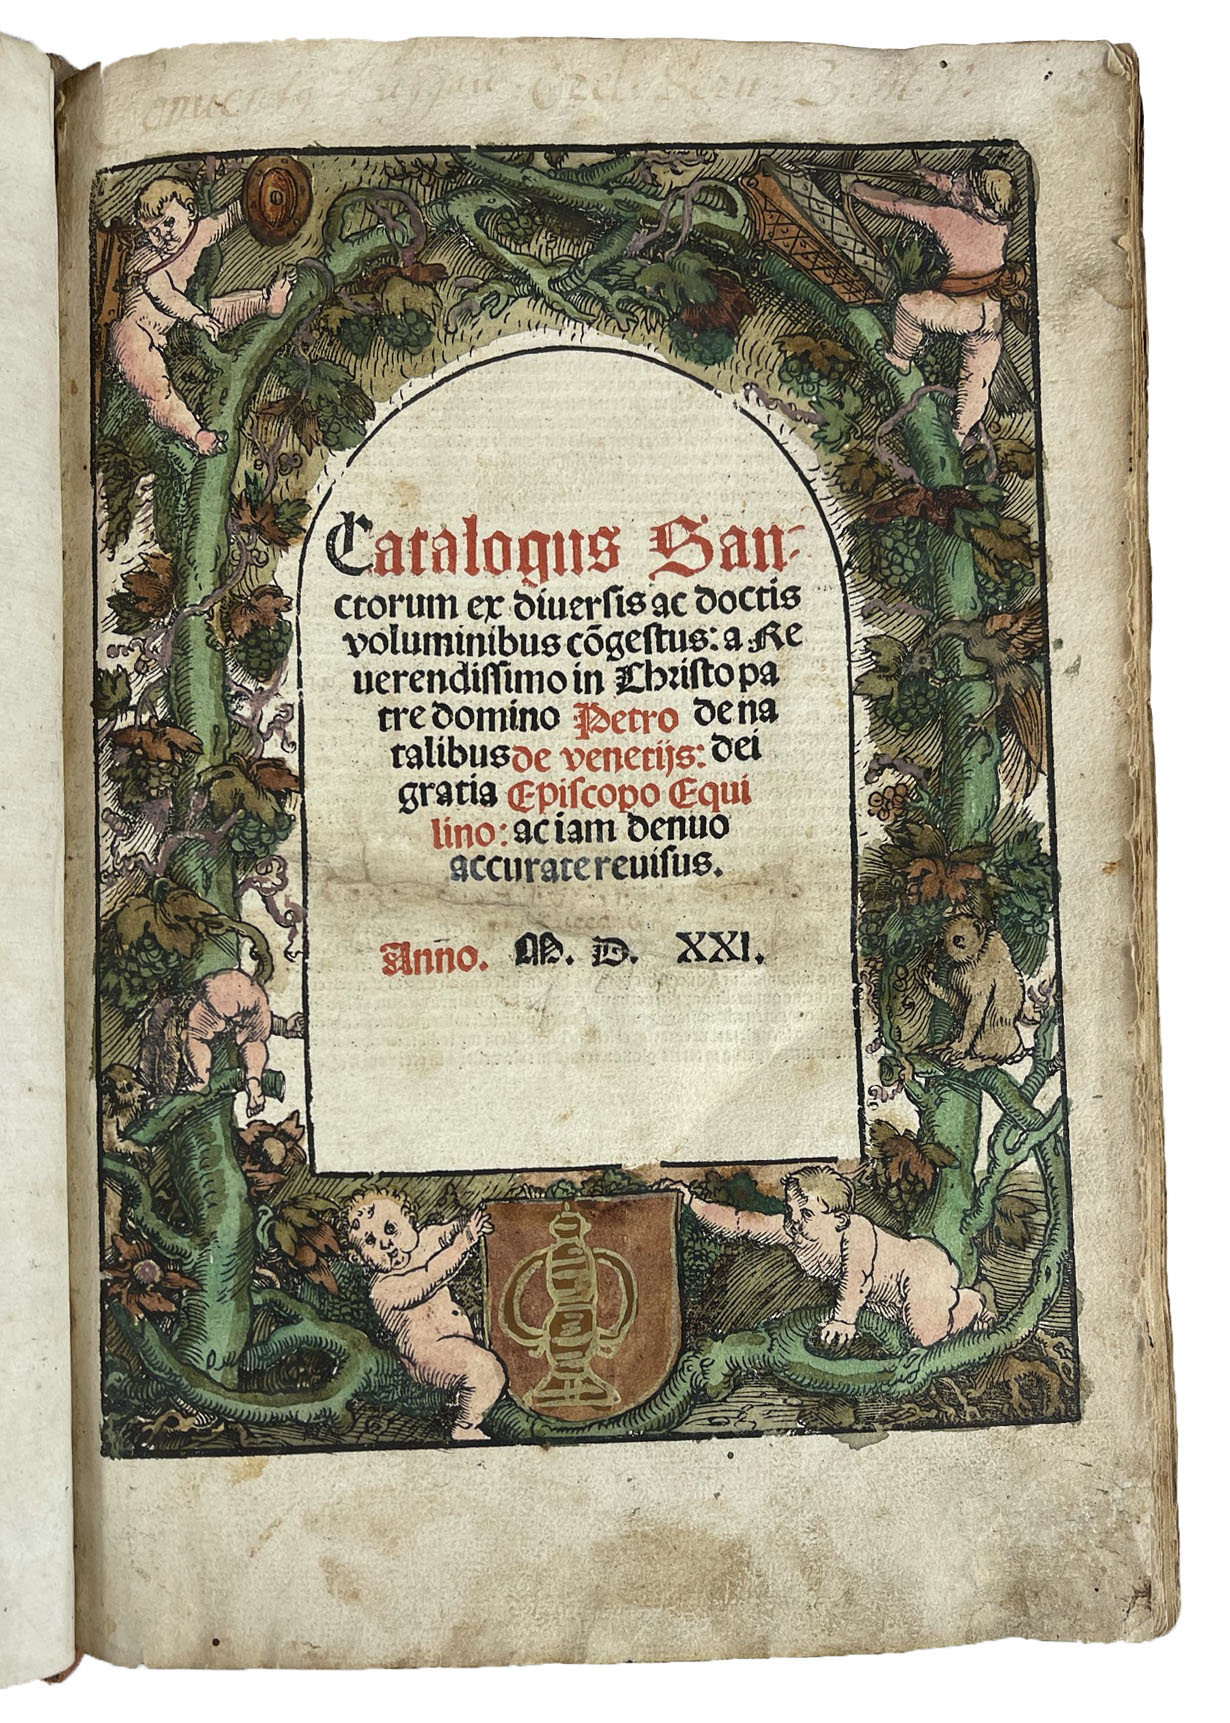 Catalogus San-
ctorum ex diuersis ac doctis
voluminibus cõgestus: a Re
uerendissimo in Christo pa
tre domino Petro de na
talibus de venetijs: dei
gratia Episcopo Equi
lino: ac iam denuo
accurate reuisus.
Anno. M. D. XXI.